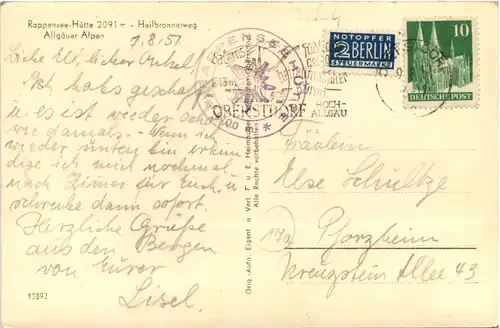 Rappensee-Hütte 2091 m - Heilbronnerweg
Allgäuer Alpen
7.8.51
Liebe El, lieber Onkel!
Ich habs geschafft
u. es ist wieder schön
wie damals. Wenn ich
wieder unten bin erkun-
dige ich mich nochmal
nach Zimmer für Euch u.
schreibe dann sofort.
Herzliche Grüße
aus den Bergen
von Eurer
Lisel.
10892
Orig.-Aufn. Eigent. u. Verl. F. u. E. Heimhuber
Alle Rechte vorbehalten
RAPPENSEEHÜTTE
OBERSTDORF
HOCH-
ALLGÄU
NOTOPFER
2 BERLIN
STEUERMARKE
10
DEUTSCHE POST
Fräulein
Else Schultze
(14a) Pforzheim
Kreuzstein Allee 43